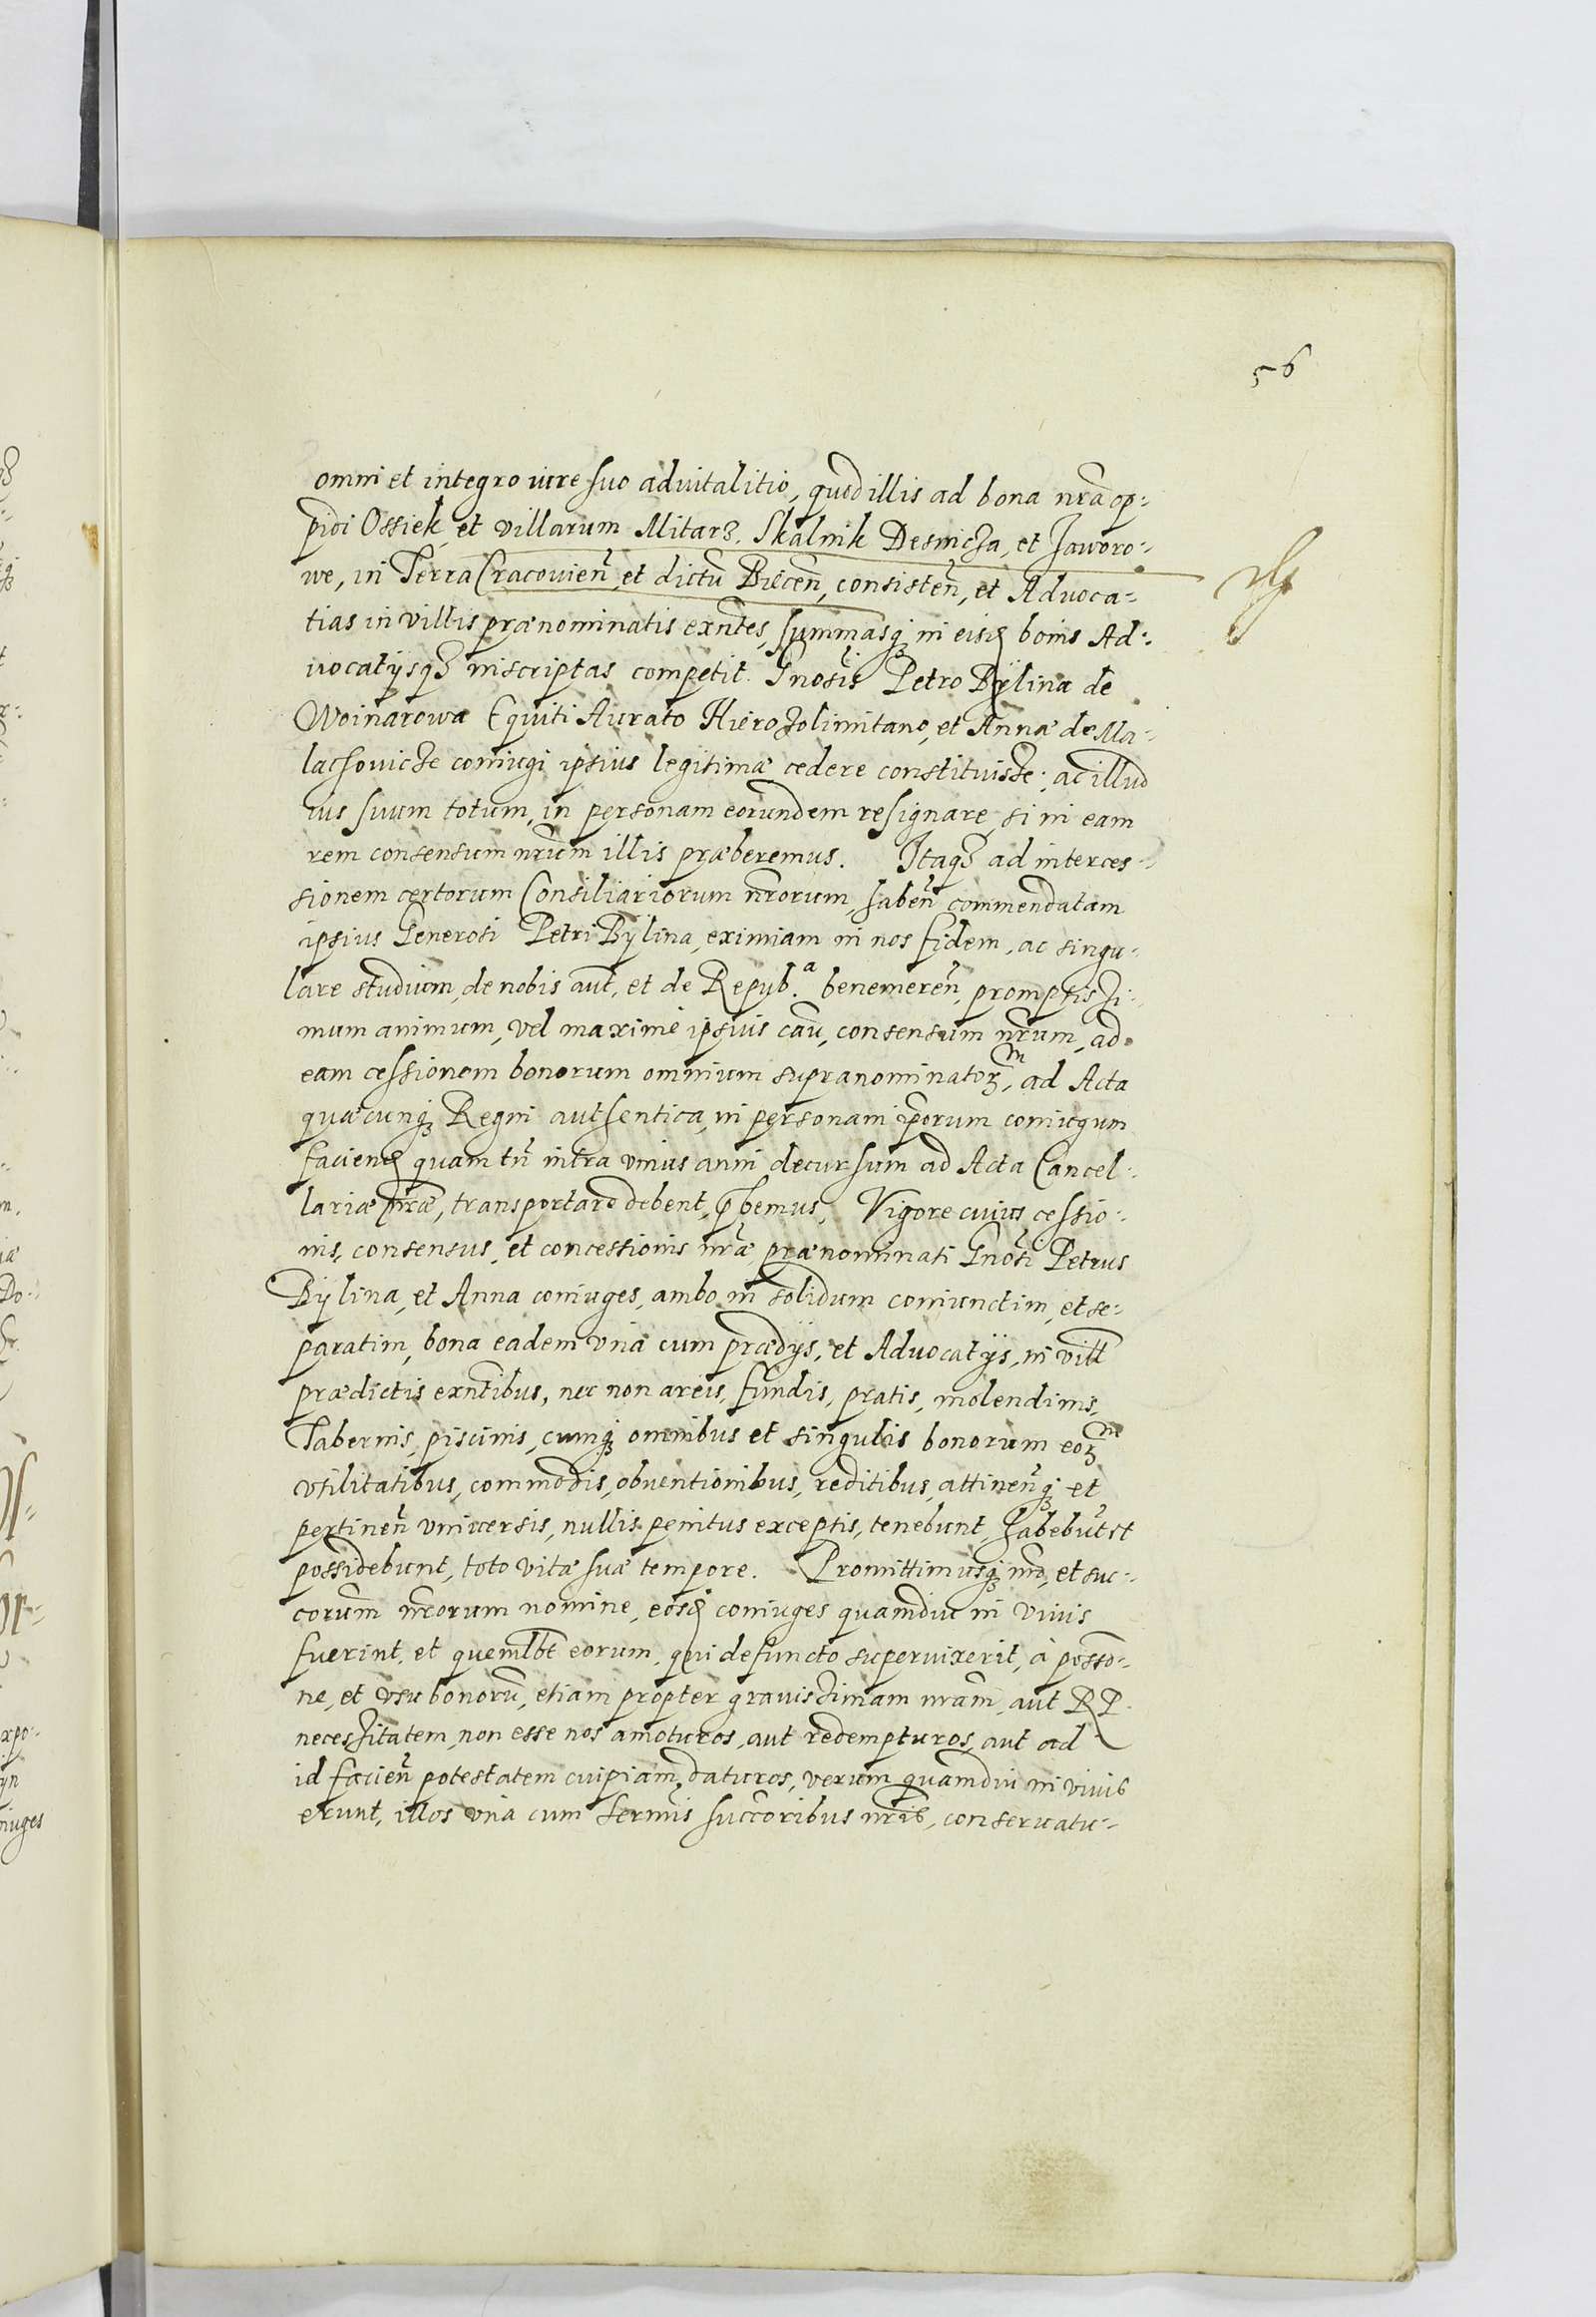 56
omni et integro iure suo aduitalitio, quod illis ad bona nrã op⸗
pidi Ossiek, et villarum Mitarz. Skalnik Desnicza, et Jaworo⸗
we, in Terra Cracouien̄, et dictũ Biecen̄, consisten̄, et Aduoca⸗
tias in villis prænominatis exñtes, summasqꝫ in eisd boins Ad⸗
uocatijsqꝫ inscriptas competit. Gnosis Petro Bÿlina de
Woinarowa Equiti Aurato Hierozolimitano, et Annæ de Ma⸗
lachouicze coniugi ipsius legitimæ cedere constituisse; ac illud
ius suum totum, in personam eorundem resignare, si in eam
rem consensum nrũm illis præberemus. Itaqꝫ ad interces⸗
sionem certorum Consiliariorum nr̃orum, haben̄ commendatam
ipsius Generosi Petri Bÿlina, eximiam in nos fidem, ac singu⸗
lare studium, de nobis aut, et de Repub.ᵃ benemeren̄, promptissi⸗
mum animum, vel maximè ipsius cau, consensum nr̃um, ad
eam cessionem bonorum omnium supranominatoꝝᵐ, ad Acta
quæcunqꝫ Regni authentica, in personam ip̃orum coniugum
faciend quam tñ intra vnius anni decursum ad Acta Cancel⸗
lariæ nr̃æ, transportare debent, p̃bemus, Vigore cuius cessio⸗
nis, consensus, et concessionis nr̃æ, prænominati Gnosi Petrus
Bÿlina, et Anna coniuges, ambo in solidum coniunctim, et se⸗
paratim, bona eadem vnà cum prædijs, et Aduocatijs, in vill
prædictis exñtibus, nec non areis, fundis, pratis, molendinis,
Tabernis, piscinis, cumqꝫ omnibus et singulis bonorum eoꝝᵐ
vtilitatibus, commodis, obuentionibus, reditibus, attinen̄qꝫ et
pertinen̄ vniuersis, nullis penitus exceptis, tenebunt, habebũt et
possidebunt, toto vitæ suæ tempore. Promittimusqꝫ nrõ, et suc⸗
corum nr̃orum nomine, eosd coniuges quamdiu in viuis
fuerint, et quemlbt eorum, qui defuncto superuixerit, à posso⸗
ne, et vsu bonorũ, etiam propter grauissimam nrãm, aut RP.
necessitatem, non esse nos amoturos, aut redempturos, aut ad
id facien̄ potestatem cuipiam daturos, verum quamdiu in viuis
erunt, illos vnà cum Sermis succoribus nr̃is, conseruatu⸗